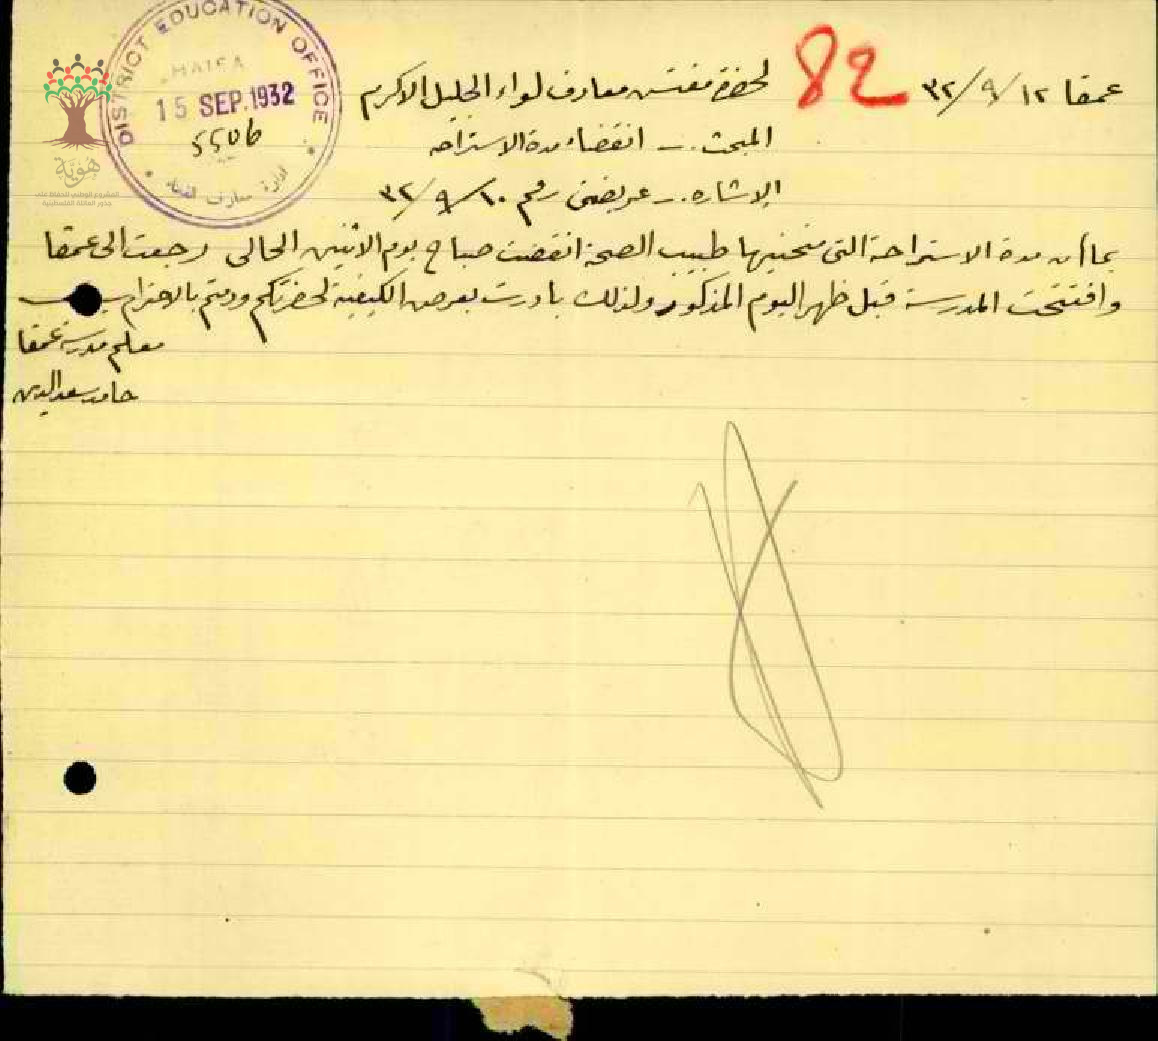 DISTRICT EDUCATION OFFICE
HAIFA
15 SEP. 1932
5506
هوية
المشروع الوطني للحفاظ على
جذور العائلة الفلسطينية
82
عمقا ١٢/٩/٣٢
لحضرة مفتش معارف لواء الجليل الاكرم
المبحث :- انقضاء مدة الاستراحه
الاشاره :- عريضتي رقم ١٠/٩/٣٢
بما أن مدة الاستراحة التي منحنيها طبيب الصحة انقضت صباح يوم الاثنين الحالي رجعت الى عمقا
وافتتحت المدرسة قبل ظهر اليوم المذكور ولذلك بادرت بعرض الكيفية لحضرتكم ودمتم بالاحترام
معلم مدرسة عمقا
حامد سعد الدين